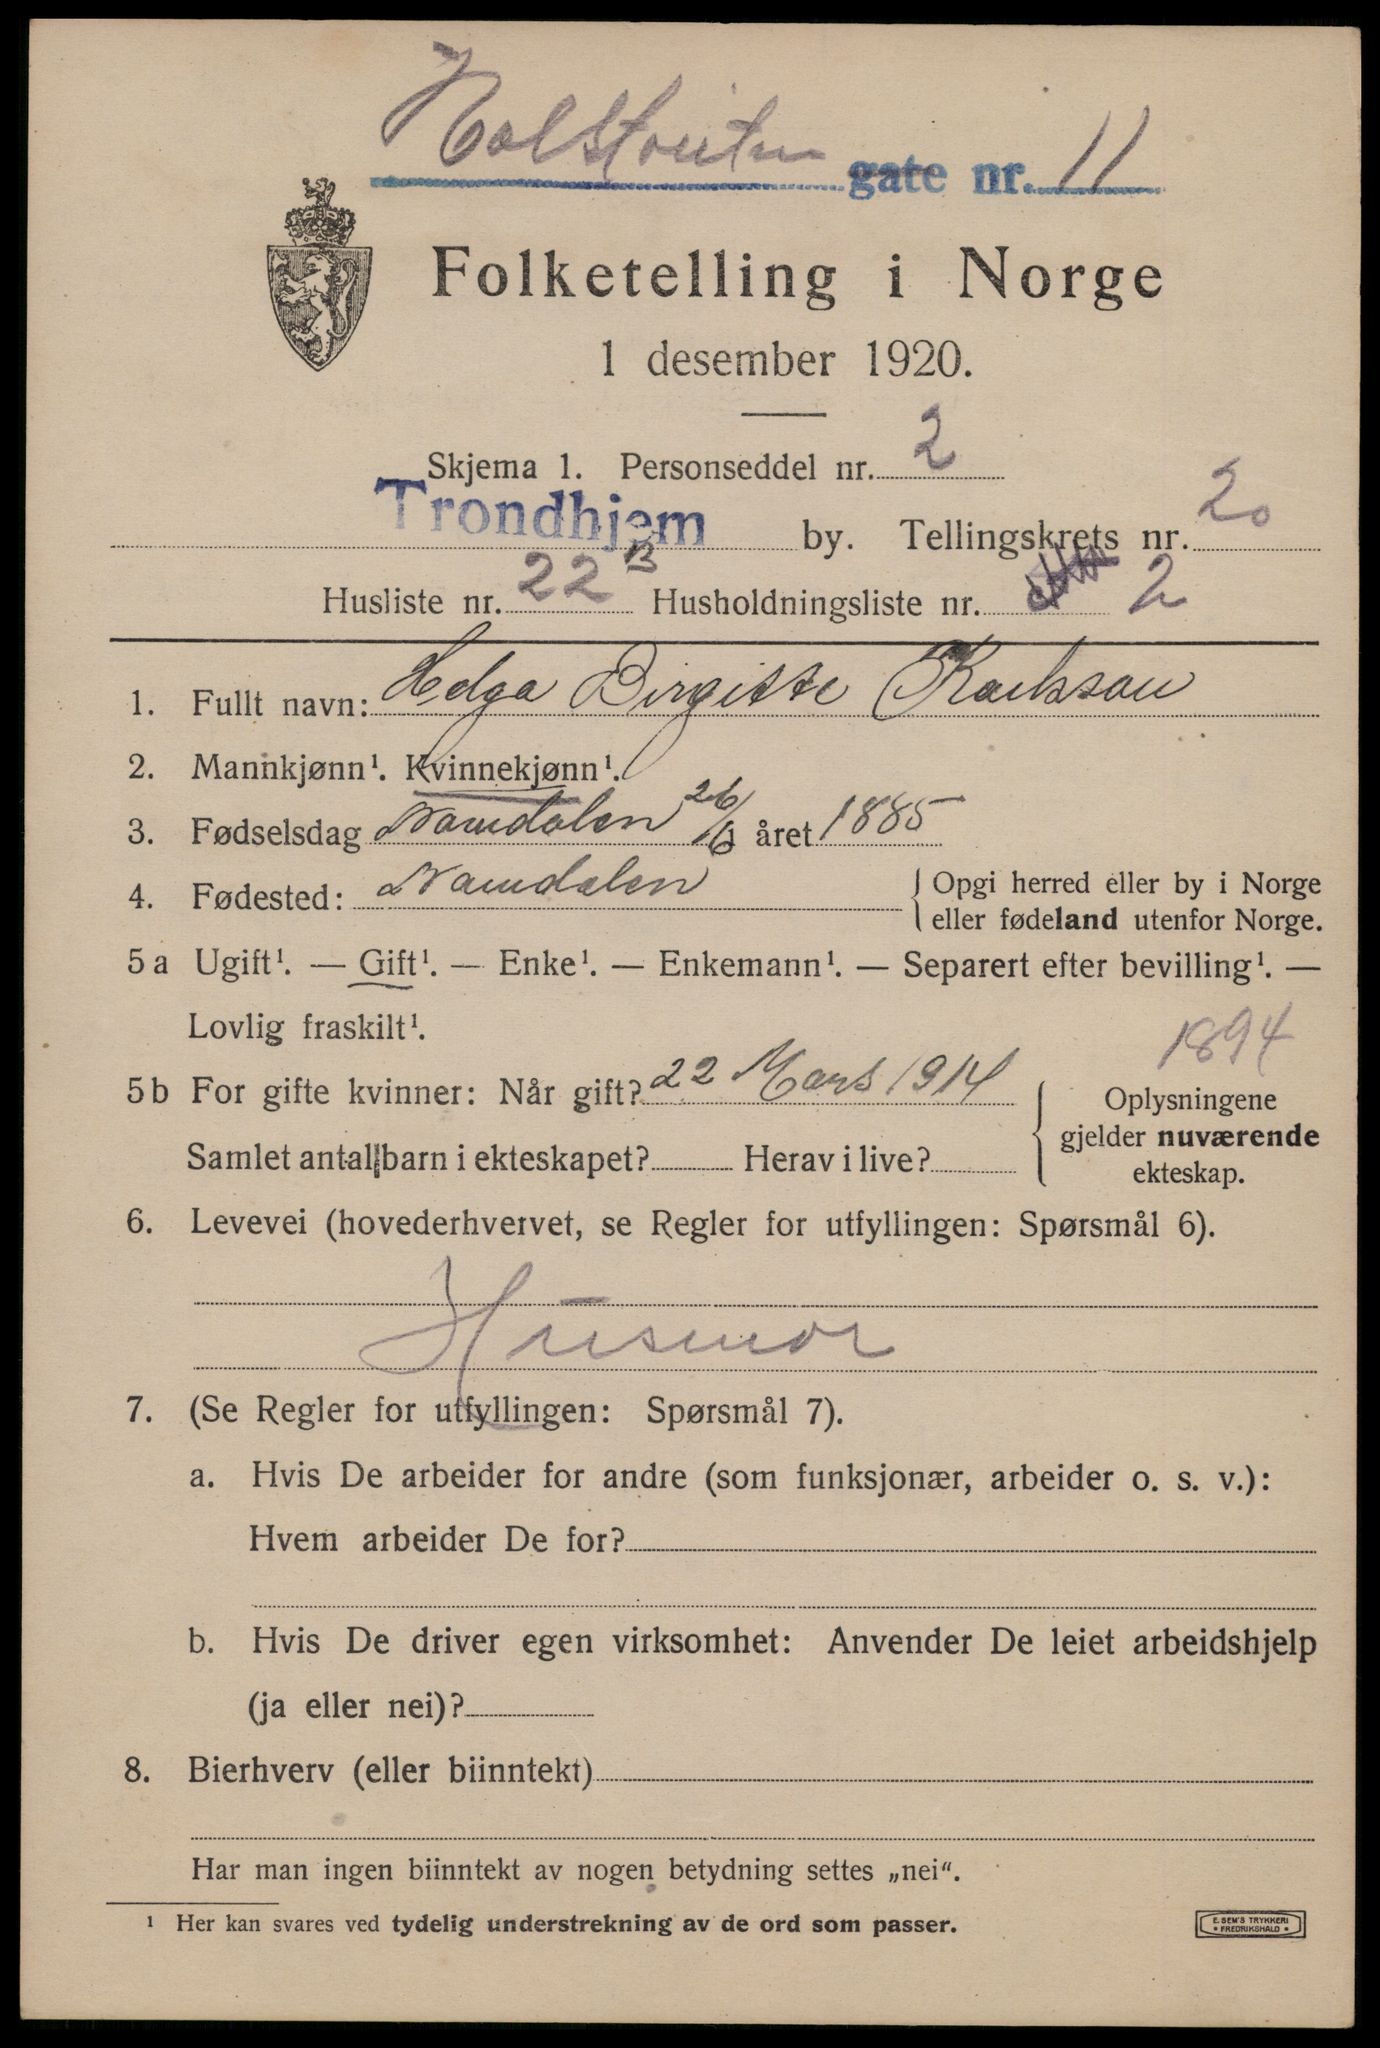 gate nr. 11
Folketelling i Norge
1 desember 1920.
Skjema 1. Personseddel nr. 2
Trondhjem by. Tellingskrets nr. 20
Husliste nr. 22 B Husholdningsliste nr. 2
1. Fullt navn: Helga Birgitte Karlsson
2. Mannkjønn¹. Kvinnekjønn¹.
3. Fødselsdag Namdalen 26/6 året 1885
4. Fødested: Namdalen { Opgi herred eller by i Norge
eller fødeland utenfor Norge.
5 a Ugift¹. — Gift¹. — Enke¹. — Enkemann¹. — Separert efter bevilling¹. —
Lovlig fraskilt¹.
1894
5 b For gifte kvinner: Når gift? 22 Mars 1914 { Oplysningene
gjelder nuværende
Samlet antal barn i ekteskapet? Herav i live?
ekteskap.
6. Levevei (hovederhvervet, se Regler for utfyllingen: Spørsmål 6).
Husmor
7. (Se Regler for utfyllingen: Spørsmål 7).
a. Hvis De arbeider for andre (som funksjonær, arbeider o. s. v.):
Hvem arbeider De for?
b. Hvis De driver egen virksomhet: Anvender De leiet arbeidshjelp
(ja eller nei)?
8. Bierhverv (eller biinntekt)
Har man ingen biinntekt av nogen betydning settes „nei“.
¹ Her kan svares ved tydelig understrekning av de ord som passer.
E. SEM'S TRYKKERI
FREDRIKSHALD